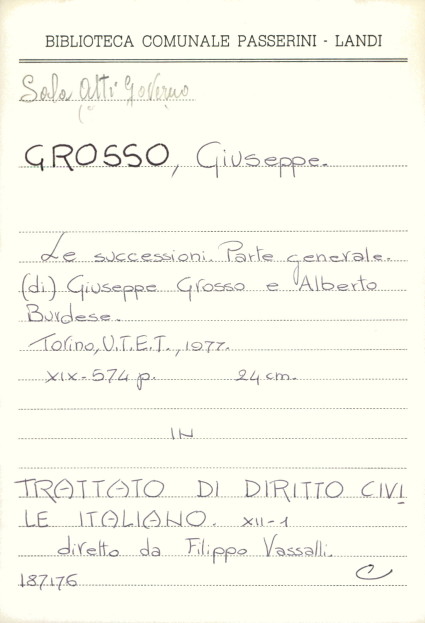 BIBLIOTECA COMUNALE PASSERINI - LANDI
Sala Atti Governo
GROSSO, Giuseppe.
Le successioni. Parte generale.
(di) Giuseppe Grosso e Alberto
Burdese.
Torino, U.T.E.T., 1977.
XIX-574 p. 24 cm.
IN
TRATTATO DI DIRITTO CIVI
LE ITALIANO. XII-1
diretto da Filippo Vassalli.
187.176 C